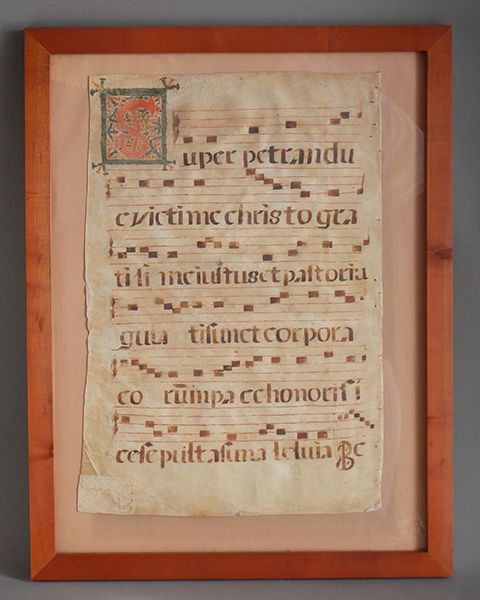 Super petrandu
e victime christo gra
tisi meiustusetpastoria
guia tisunetcorpora
eo rum inpa cehonorifi
cesepultasuna leluia